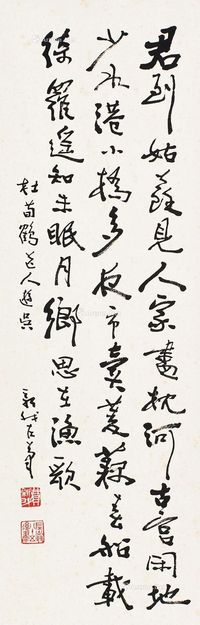 君到姑蘇見人家盡枕河古宮閑地
少水港小橋多夜市賣菱藕春船載
綺羅遙知未眠月鄉思在漁歌
杜荀鶴送人遊吳